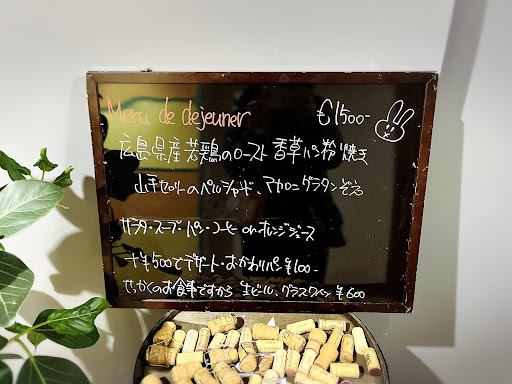 Menu de dejeuner ¥1500-
広島県産 若鶏のロースト 香草パン粉焼き
のペルシャード、マカロニグラタンぞえ
サラダ・スープ・パン・コーヒー orオレンジジュース
+¥500でデザート・おかわりパン¥100-
せっかくのお食事ですから 生ビール、グラスワイン ¥600